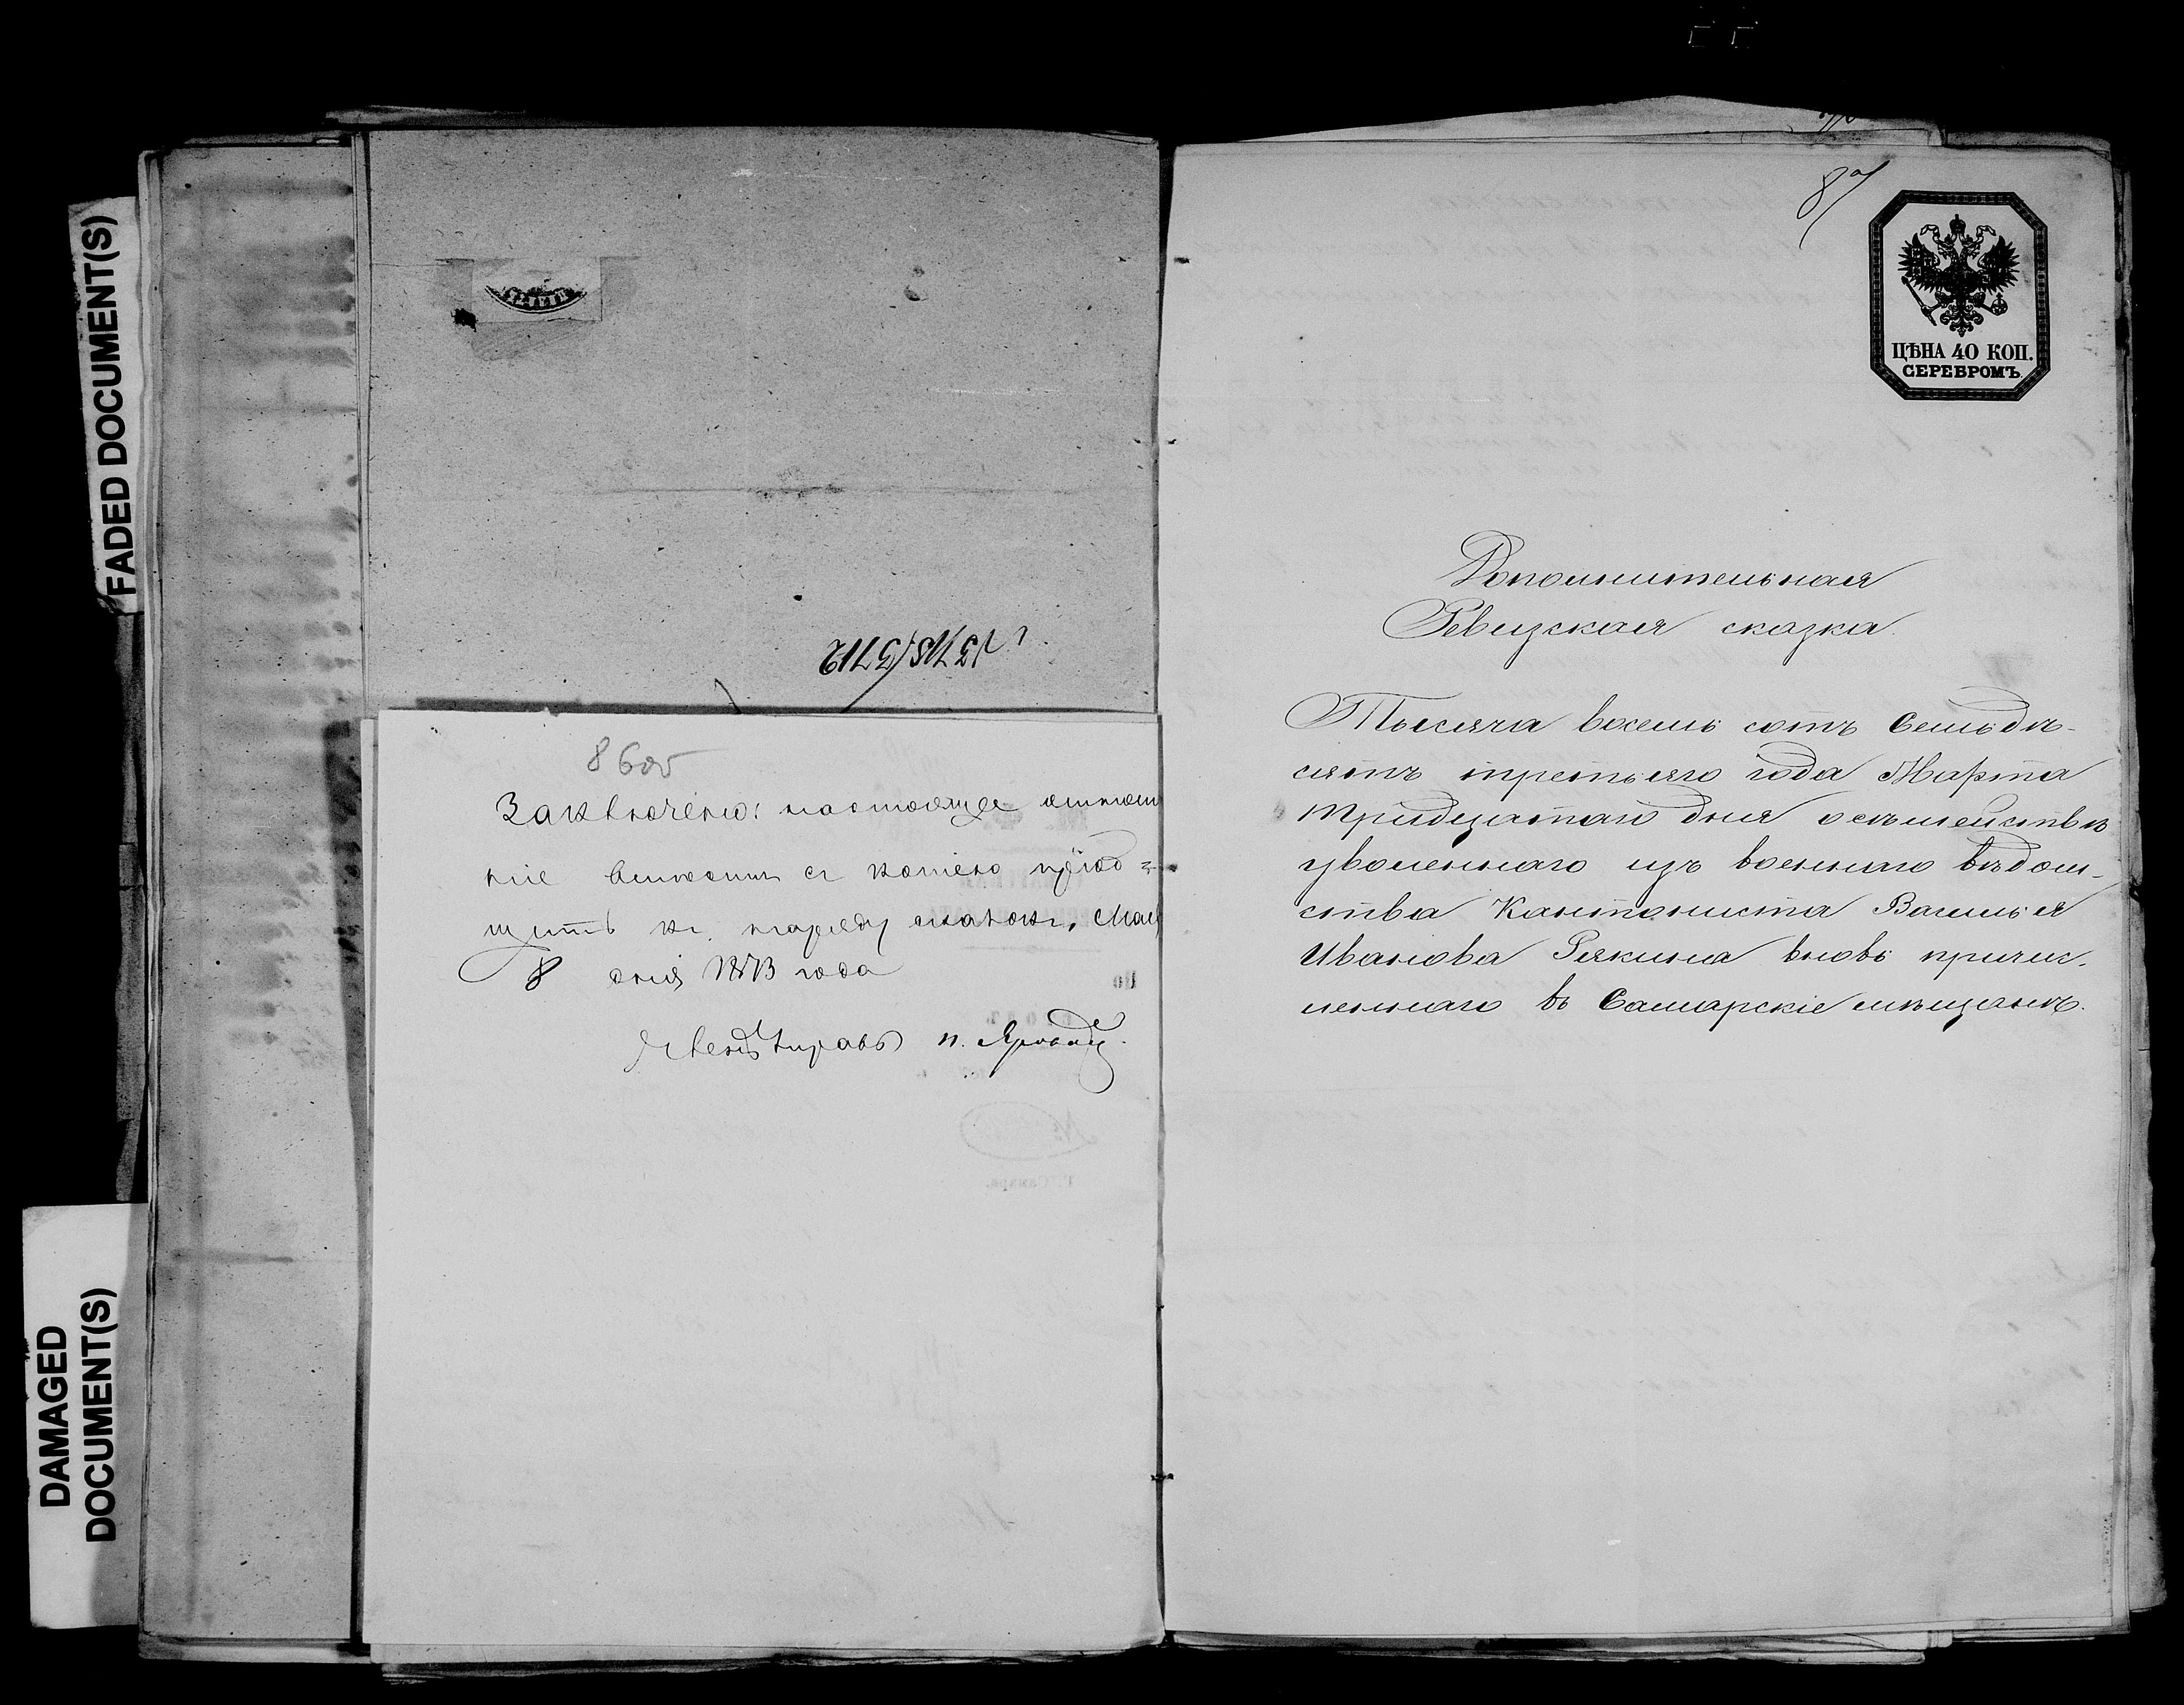 FADED DOCUMENT(S)
DAMAGED
DOCUMENT(S)
860б
Заключено: настоящее отноше
ніе вмѣстѣ съ копіею пріоб=
щить къ наряду сказокъ, Мая
8 дня 1873 года
87
ЦѢНА 40 КОП.
СЕРЕБРОМЪ.
Дополнительная
Ревизская сказка.
Тысяча восемь сотъ семьде-
сятъ третьяго года Марта
тридцатаго дня о семействѣ
уволеннаго изъ военнаго вѣдом-
ства Кантониста Василья
Иванова Рякина вновь причис-
леннаго въ Самарскіе мѣщане.